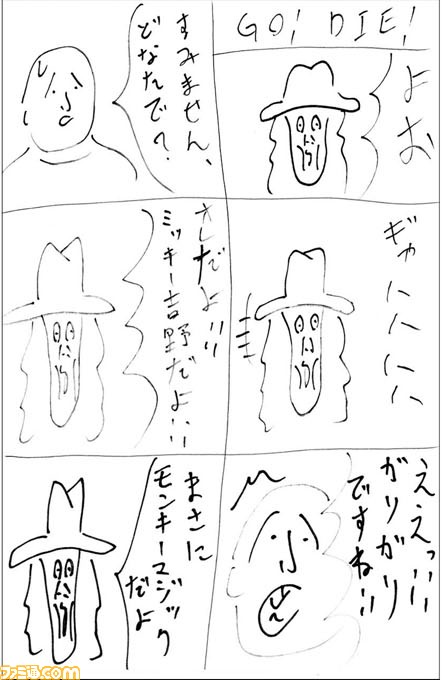 GO! DIE!
よお
すみません、
どなたで?
ギャハハハハ
オレだよ!!
ミッキー吉野だよ!!
ええっ!!
がりがり
ですね!!
まさに
モンキーマジック
だよ
ファミ通.com